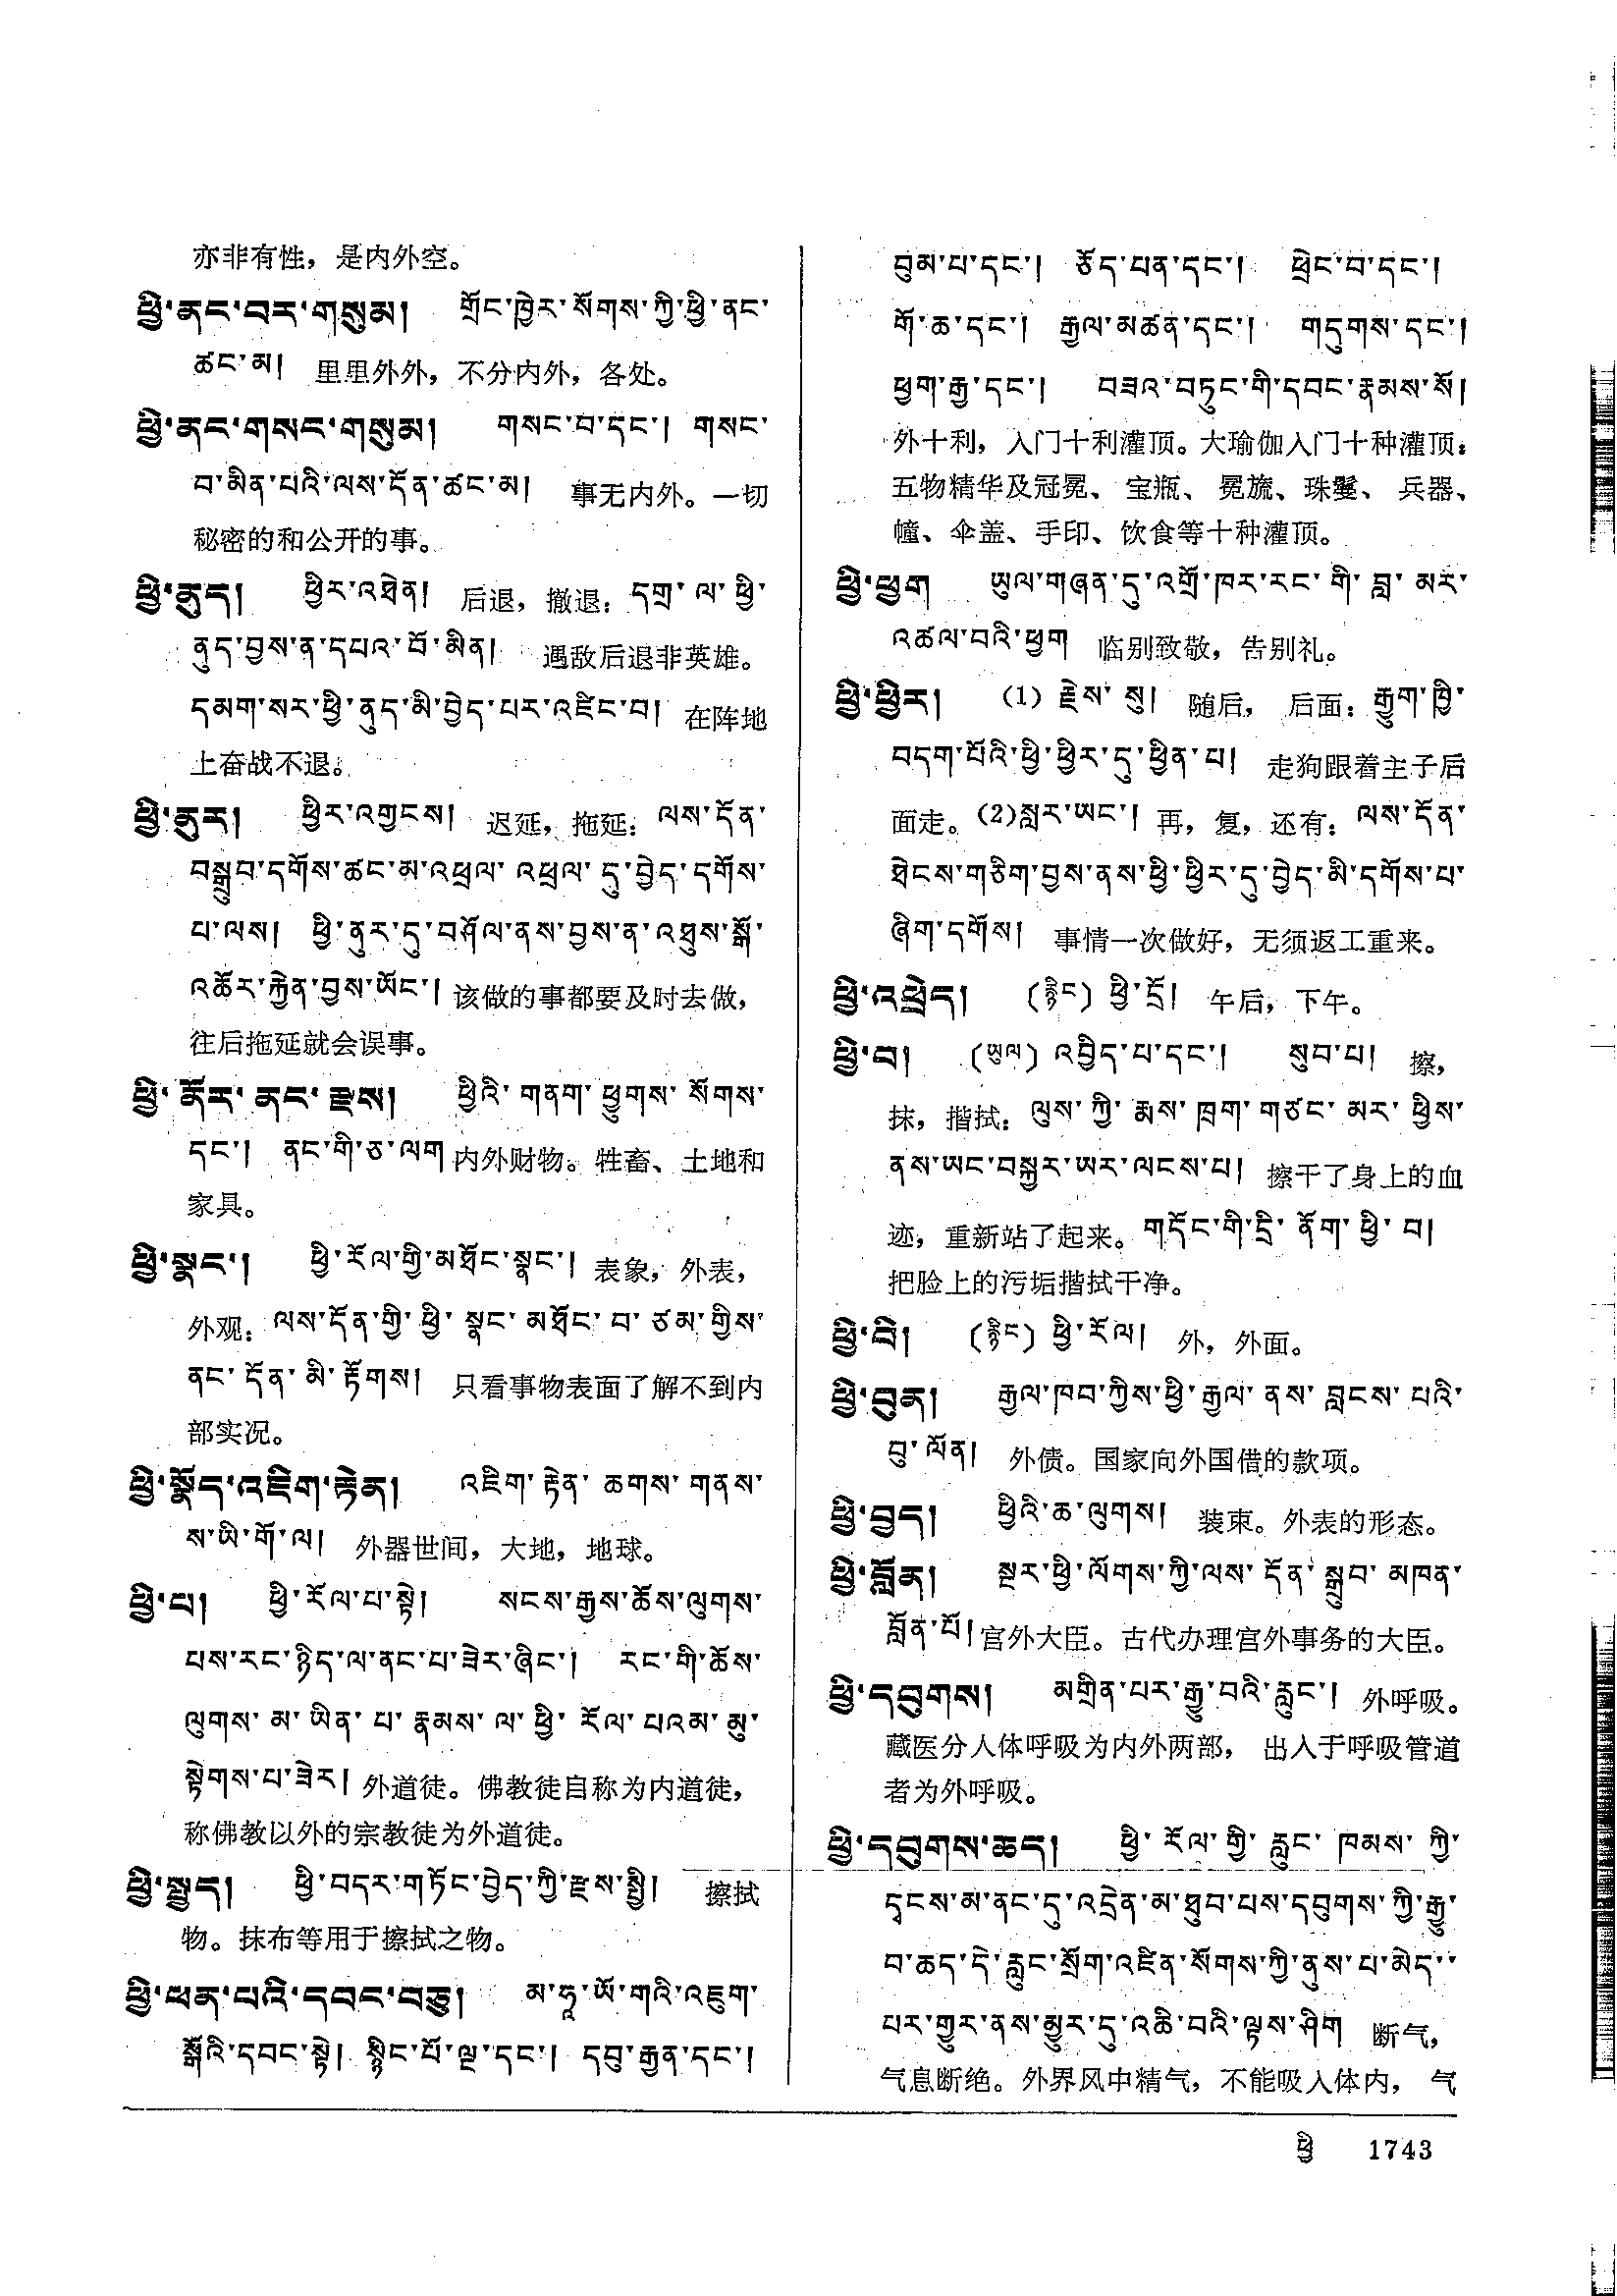 亦非有性，是内外空。
ཕྱི་ནང་བར་གསུམ། གྲོང་ཁྱེར་སོགས་ཀྱི་ཕྱི་ནང་
ཚང་མ། 里里外外，不分内外，各处。
ཕྱི་ནང་གསང་གསུམ། གསང་བ་དང་། གསང་
བ་མིན་པའི་ལས་དོན་ཚང་མ། 事无内外。一切
秘密的和公开的事。
ཕྱི་ནུད། ཕྱིར་འཐེན། 后退，撤退：དགྲ་ལ་ཕྱི་
ནུད་བྱས་ན་དཔའ་བོ་མིན། 遇敌后退非英雄。
དམག་སར་ཕྱི་ནུད་མི་བྱེད་པར་འཛིང་བ། 在阵地
上奋战不退。
ཕྱི་ནུར། ཕྱིར་འགྱངས། 迟延，拖延：ལས་དོན་
བསྒྲུབ་དགོས་ཚང་མ་འཕྲལ་འཕྲལ་དུ་བྱེད་དགོས་
པ་ལས། ཕྱི་ནུར་དུ་བཤོལ་ནས་བྱས་ན་འཐུས་སྒོ་
འཚོར་རྐྱེན་བྱས་ཡོང་། 该做的事都要及时去做，
往后拖延就会误事。
ཕྱི་ནོར་ནང་རྫས། ཕྱིའི་གནག་ཕྱུགས་སོགས་
དང་། ནང་གི་ཅ་ལག 内外财物。牲畜、土地和
家具。
ཕྱི་སྣང་། ཕྱི་རོལ་གྱི་མཐོང་སྣང་། 表象，外表，
外观：ལས་དོན་གྱི་ཕྱི་སྣང་མཐོང་བ་ཙམ་གྱིས་
ནང་དོན་མི་རྟོགས། 只看事物表面了解不到内
部实况。
ཕྱི་སྣོད་འཇིག་རྟེན། འཇིག་རྟེན་ཆགས་གནས་
ས་ཡི་གོ་ལ། 外器世间，大地，地球。
ཕྱི་པ། ཕྱི་རོལ་པ་སྟེ། སངས་རྒྱས་ཆོས་ལུགས་
པས་རང་ཉིད་ལ་ནང་པ་ཟེར་ཞིང་། རང་གི་ཆོས་
ལུགས་མ་ཡིན་པ་རྣམས་ལ་ཕྱི་རོལ་པའམ་མུ་
སྟེགས་པ་ཟེར། 外道徒。佛教徒自称为内道徒，
称佛教以外的宗教徒为外道徒。
ཕྱི་སྤྱད། ཕྱི་བདར་གཏོང་བྱེད་ཀྱི་རྫས་སྤྱི། 擦拭
物。抹布等用于擦拭之物。
ཕྱི་ཕན་པའི་དབང་བཅུ། མ་ཧཱ་ཡོ་གའི་འཇུག་
སྒོའི་དབང་སྟེ། སྙིང་པོ་ལྔ་དང་། དབུ་རྒྱན་དང་།
བུམ་པ་དང་། ཅོད་པན་དང་། ཕྲེང་བ་དང་།
གོ་ཆ་དང་། རྒྱལ་མཚན་དང་། གདུགས་དང་།
ཕྱག་རྒྱ་དང་། བཟའ་བཏུང་གི་དབང་རྣམས་སོ།
外十利，入门十利灌顶。大瑜伽入门十种灌顶：
五物精华及冠冕、宝瓶、冕旒、珠鬘、兵器、
幢、伞盖、手印、饮食等十种灌顶。
ཕྱི་ཕྱག ཡུལ་གཞན་དུ་འགྲོ་ཁར་རང་གི་བླ་མར་
འཚལ་བའི་ཕྱག 临别致敬，告别礼。
ཕྱི་ཕྱིར། (1) རྗེས་སུ། 随后，后面：རྒྱུག་ཁྱི་
བདག་པོའི་ཕྱི་ཕྱིར་དུ་ཕྱིན་པ། 走狗跟着主子后
面走。(2)སླར་ཡང་། 再，复，还有：ལས་དོན་
ཐེངས་གཅིག་བྱས་ནས་ཕྱི་ཕྱིར་དུ་བྱེད་མི་དགོས་པ་
ཞིག་དགོས། 事情一次做好，无须返工重来。
ཕྱི་འཕྲེད། (རྙིང) ཕྱི་དྲོ། 午后，下午。
ཕྱི་བ། (ཡུལ) འབྱིད་པ་དང་། སུབ་པ། 擦，
抹，揩拭：ལུས་ཀྱི་རྨས་ཁྲག་གཙང་མར་ཕྱིས་
ནས་ཡང་བསྐྱར་ཡར་ལངས་པ། 擦干了身上的血
迹，重新站了起来。གདོང་གི་དྲི་ནོག་ཕྱི་བ།
把脸上的污垢揩拭干净。
ཕྱི་བི། (རྙིང) ཕྱི་རོལ། 外，外面。
ཕྱི་བུན། རྒྱལ་ཁབ་ཀྱིས་ཕྱི་རྒྱལ་ནས་བླངས་པའི་
བུ་ལོན། 外债。国家向外国借的款项。
ཕྱི་བྱད། ཕྱིའི་ཆ་ལུགས། 装束。外表的形态。
ཕྱི་བློན། སྔར་ཕྱི་ལོགས་ཀྱི་ལས་དོན་སྒྲུབ་མཁན་
བློན་པོ། 宫外大臣。古代办理宫外事务的大臣。
ཕྱི་དབུགས། མགྲིན་པར་རྒྱུ་བའི་རླུང་། 外呼吸。
藏医分人体呼吸为内外两部，出入于呼吸管道
者为外呼吸。
ཕྱི་དབུགས་ཆད། ཕྱི་རོལ་གྱི་རླུང་ཁམས་ཀྱི་
དྭངས་མ་ནང་དུ་འདྲེན་མ་ཐུབ་པས་དབུགས་ཀྱི་རྒྱུ་
བ་ཆད་དེ་རླུང་སྲོག་འཛིན་སོགས་ཀྱི་ནུས་པ་མེད་
པར་གྱུར་ནས་མྱུར་དུ་འཆི་བའི་ལྟས་ཤིག 断气，
气息断绝。外界风中精气，不能吸入体内，气
ཕྱི 1743